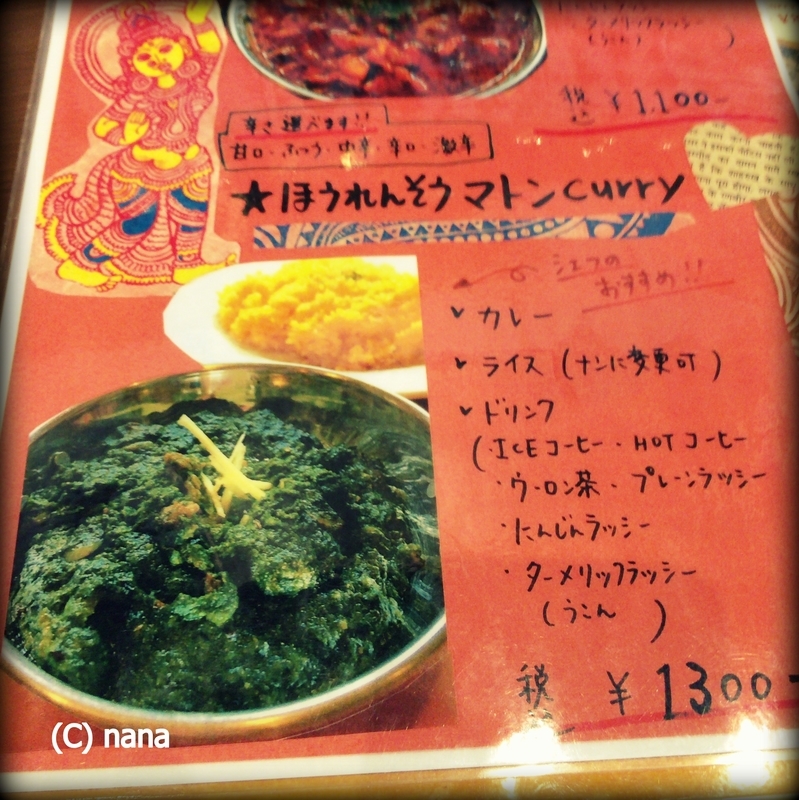 ・ターメリックラッシー
(うこん )
税込 ¥1,100-
辛さ選べます!!
甘口・ふつう・中辛・辛口・激辛
★ほうれんそうマトンcurry
シェフの
おすすめ!!
✓カレー
✓ライス (ナンに変更可)
✓ドリンク
(・ICEコーヒー・HOTコーヒー
・ウーロン茶・プレーンラッシー
・にんじんラッシー
・ターメリックラッシー
(うこん )
税込 ¥1300-
(C) nana